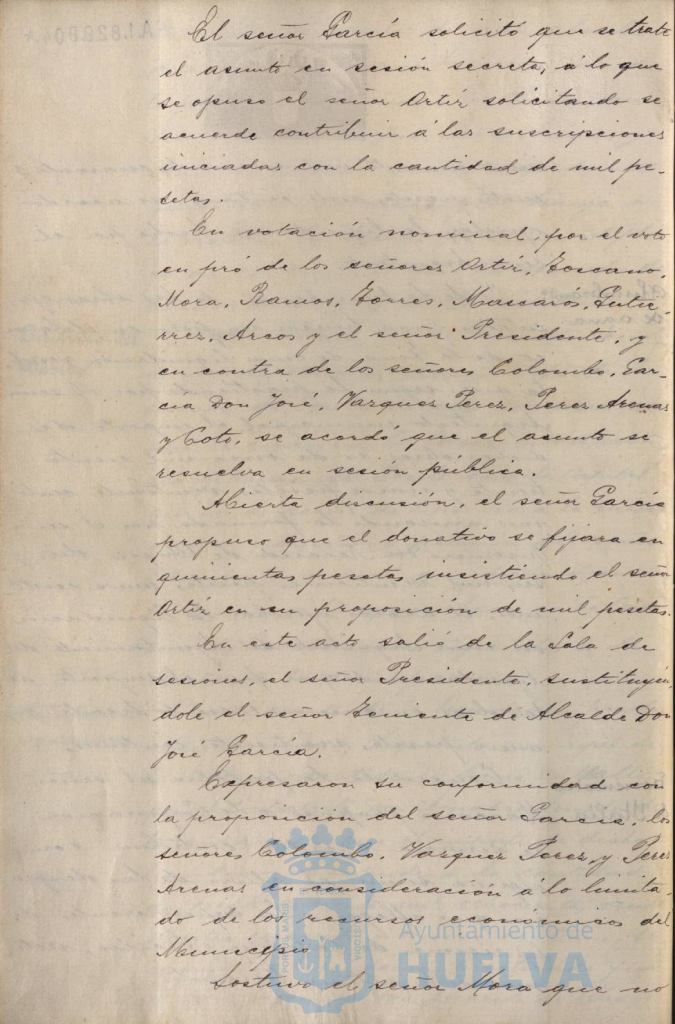 El señor García solicitó que se trate
el asunto en sesión secreta, á lo que
se opuso el señor Ortiz solicitando se
acuerde contribuir á las suscripciones
iniciadas con la cantidad de mil pe-
setas.
En votación nominal, por el voto
en pró de los señores Ortiz, Toscano,
Mora, Ramos, Torres, Mascarós, Gutié-
rrez, Arcos y el señor Presidente, y
en contra de los señores Colombo, Gar-
cía Don José, Vazquez Perez, Perez Arenas
y Coto, se acordó que el asunto se
resuelva en sesión pública.
Abierta discusión, el señor García
propuso que el donativo se fijara en
quinientas pesetas insistiendo el señor
Ortiz en su proposición de mil pesetas.
En este acto salió de la Sala de
sesiones, el señor Presidente, sustituyén-
dole el señor Teniente de Alcalde Don
José García.
Expresaron su conformidad con
la proposición del señor García, los
señores Colombo, Vazquez Perez, y Perez
Arenas en consideración á lo limita-
do de los recursos económicos del
Municipio.
Sostuvo el señor Mora que no
Ayuntamiento de
HUELVA